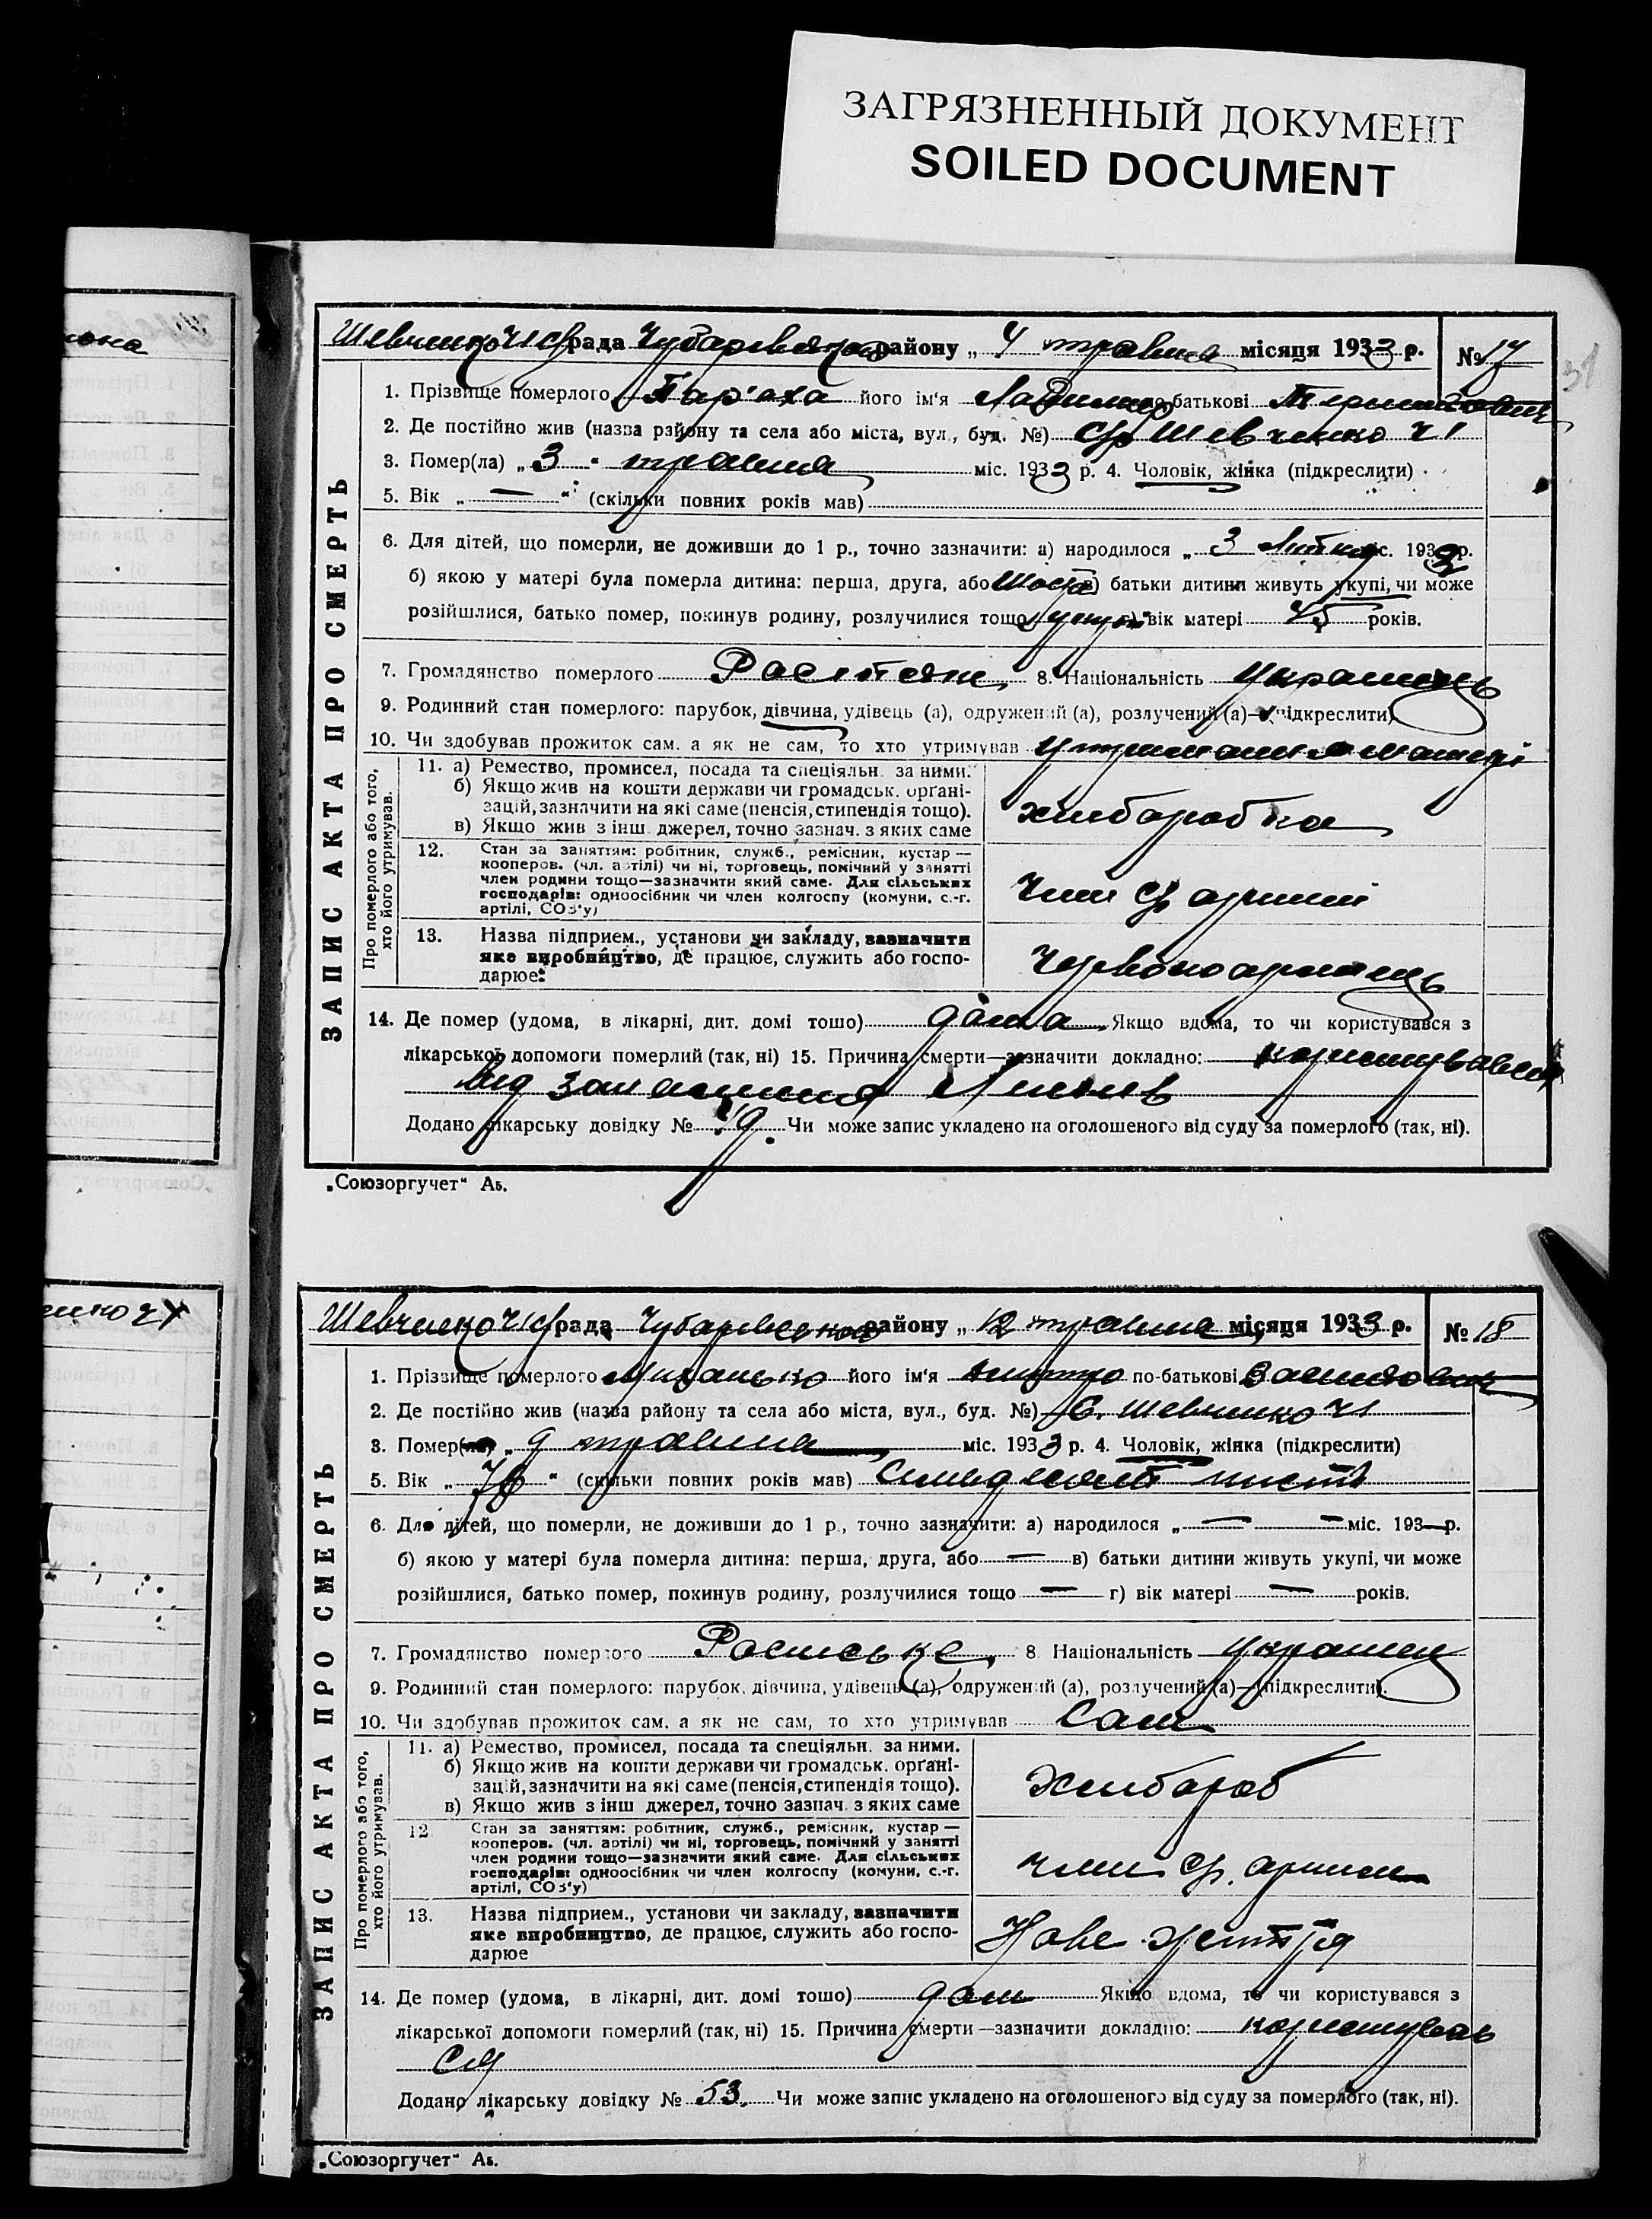 ЗАГРЯЗНЕННЫЙ ДОКУМЕНТ
SOILED DOCUMENT
31
Шевченко ЧІ с/рада Чубарівського району „ 4 травня місяця 1933 р. № 17
ЗАПИС АКТА ПРО СМЕРТЬ
1. Прізвище померлого його ім'я по-батькові
2. Де постійно жив (назва району та села або міста, вул., буд. №) с/р Шевченко ЧІ
3. Помер(ла) „ 3 " травня міс. 1933 р. 4. Чоловік, жінка (підкреслити)
5. Вік „ — " (скільки повних років мав)
6. Для дітей, що померли, не доживши до 1 р., точно зазначити: а) народилося „ 3 міс. 193 р.
б) якою у матері була померла дитина: перша, друга, або шоста в) батьки дитини живуть укупі, чи може
розійшлися, батько помер, покинув родину, розлучилися тощо укупі г) вік матері 45 років.
7. Громадянство померлого 8. Національність Українець
9. Родинний стан померлого: парубок, дівчина, удівець (а), одружений (а), розлучений (а)—(підкреслити)
10. Чи здобував прожиток сам, а як не сам, то хто утримував матері
Про померлого або того, хто його утримував.
11. а) Ремество, промисел, посада та спеціяльн. за ними.
б) Якщо жив на кошти держави чи громадськ. орґані-
зацій, зазначити на які саме (пенсія, стипендія тощо).
в) Якщо жив з інш. джерел, точно зазнач. з яких саме
хліборобка
12. Стан за заняттям: робітник, служб., ремісник, кустар —
кооперов. (чл. артілі) чи ні, торговець, помічний у занятті
член родини тощо—зазначити який саме. Для сільських
господарів: одноосібник чи член колгоспу (комуни, с.-г.
артілі, СОЗ'у)
Член с/г артілі
13. Назва підприєм., установи чи закладу, зазначити
яке виробництво, де працює, служить або госпо-
дарює:
Червоноармієць
14. Де помер (удома, в лікарні, дит. домі тошо) дома Якщо вдома, то чи користувався з
лікарської допомоги померлий (так, ні) 15. Причина смерти—зазначити докладно: користувався
від запалення
Додано лікарську довідку № 19 Чи може запис укладено на оголошеного від суду за померлого (так, ні).
„Союзоргучет" Аь.
Шевченко ЧІ с/рада Чубарівського району „ 12 травня місяця 1933 р. № 18
ЗАПИС АКТА ПРО СМЕРТЬ
1. Прізвище померлого його ім'я Дмитро по-батькові Васильович
2. Де постійно жив (назва району та села або міста, вул., буд. №) С. Шевченко ЧІ
3. Помер(ла) „ 9 травня міс. 1933 р. 4. Чоловік, жінка (підкреслити)
5. Вік „ 76 " (скільки повних років мав) Сімдесят шість
6. Для дітей, що померли, не доживши до 1 р., точно зазначити: а) народилося „ — — міс. 193— р.
б) якою у матері була померла дитина: перша, друга, або — в) батьки дитини живуть укупі, чи може
розійшлися, батько помер, покинув родину, розлучилися тощо — г) вік матері — років.
7. Громадянство померлого 8 Національність Українець
9. Родинний стан померлого: парубок, дівчина, удівець (а), одружений (а), розлучений (а)—(підкреслити).
10. Чи здобував прожиток сам, а як не сам, то хто утримував Сам
Про померлого або того, хто його утримував.
11. а) Ремество, промисел, посада та спеціяльн. за ними.
б) Якщо жив на кошти держави чи громадськ. орґані-
зацій, зазначити на які саме (пенсія, стипендія тощо).
в) Якщо жив з інш джерел, точно зазнач. з яких саме
Хлібороб
12 Стан за заняттям: робітник, служб., ремісник, кустар —
кооперов. (чл. артілі) чи ні, торговець, помічний у занятті
член родини тощо—зазначити який саме. Для сільських
господарів: одноосібник чи член колгоспу (комуни, с.-г.
артілі, СОЗ'у)
член с/г. артілі
13. Назва підприєм., установи чи закладу, зазначити
яке виробництво, де працює, служить або госпо-
дарює
Нове життя
14. Де помер (удома, в лікарні, дит. домі тошо) дом Якщо вдома, то чи користувався з
лікарської допомоги померлий (так, ні) 15. Причина смерти—зазначити докладно: користував
ся
Додано лікарську довідку № 53 Чи може запис укладено на оголошеного від суду за померлого (так, ні).
„Союзоргучет" Аь.